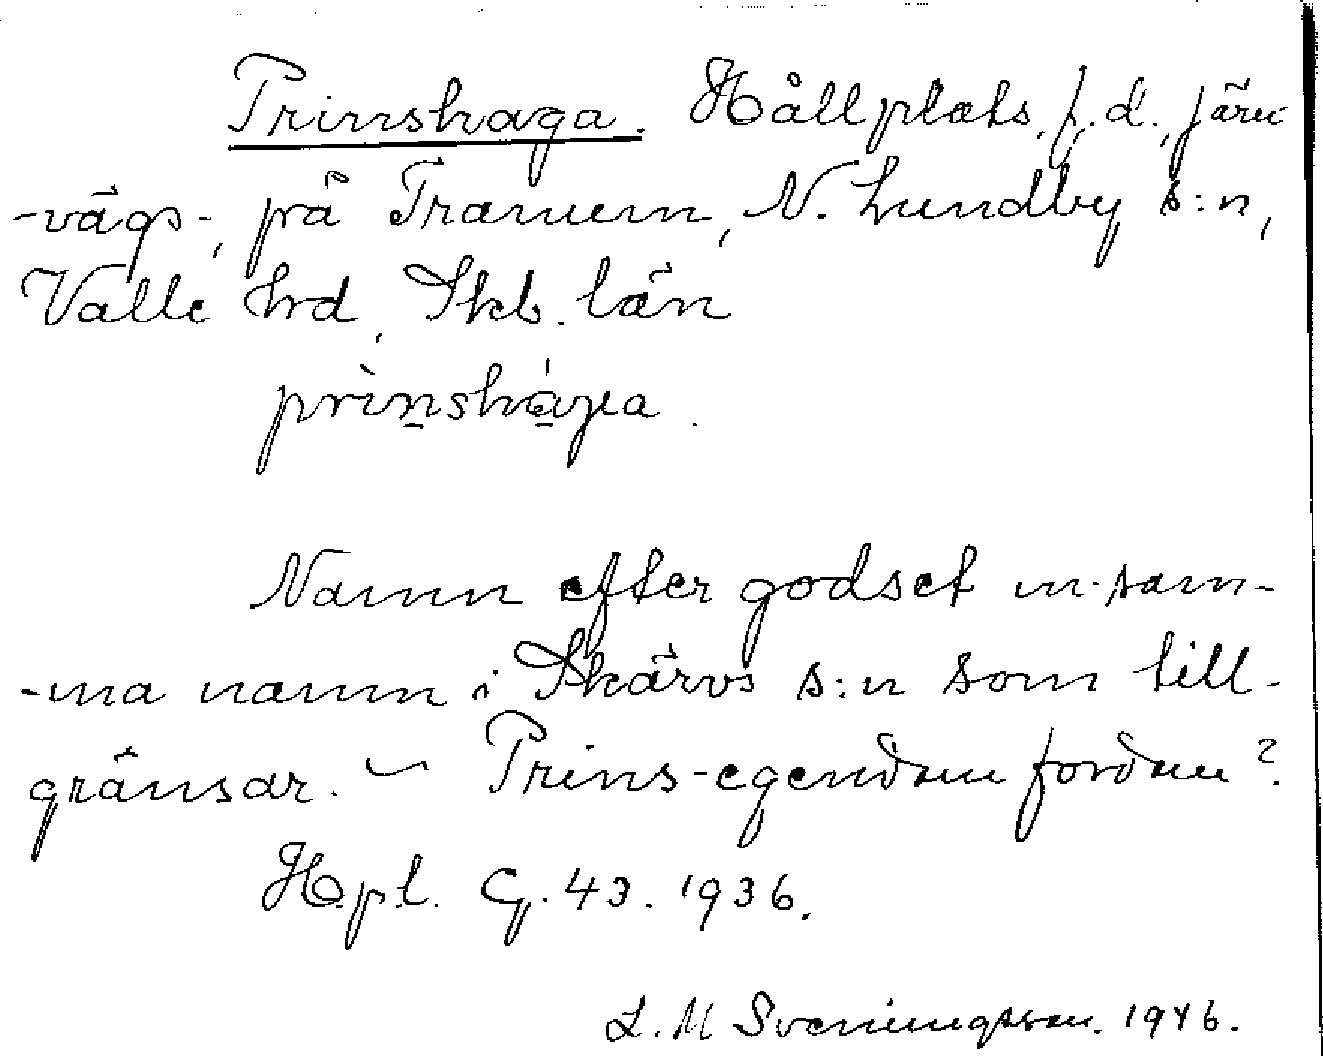 Prinshaga. Hållplats, f.d., järn
-vägs-, på Tranum, N. Lundby s:n,
Valle hd, Skb. län
prìnshága.
Namn efter godset m. sam-
-ma namn i Skärvs s:n som till-
gränsar. — Prins-egendom fordom?
Hpl. G. 43. 1936.
L. M Sveningsson. 1946.